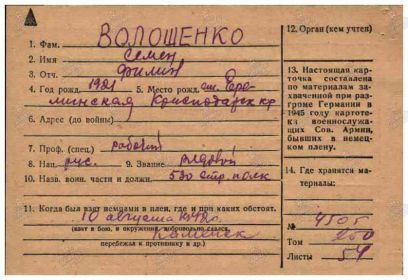 1. Фам. ВОЛОШЕНКО
2. Имя Семен
3. Отч. Филип
4. Год рожд. 1921 5. Место рожд. ст.
минская Краснодарск кр
6. Адрес (до войны)
7. Проф. (спец.) рабочий
8. Нац. рус. 9. Звание рядовой
10. Назв. воин. части и должн. 530 стр. полк
11. Когда был взят немцами в плен, где и при каких обстоят.
10 августа 1942 г.
(взят в бою, в окружении, добровольно сдался,
Каменск
перебежал к противнику и др.)
12. Орган (кем учтен)
13. Настоящая кар-
точка составлена
по материалам за-
хваченной при раз-
громе Германии в
1945 году картоте-
ки военнослужа-
щих Сов. Армии,
бывших в немец-
ком плену.
14. Где хранятся ма-
териалы:
№ 4505
Том 250
Листы 54